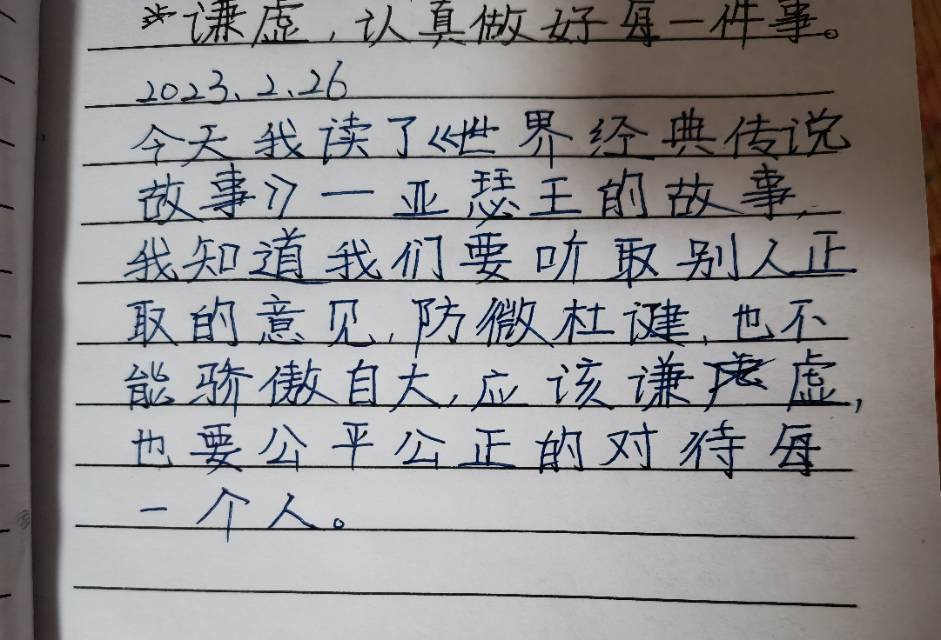 谦虚，认真做好每一件事。
2023.2.26
今天我读了《世界经典传说
故事》一亚瑟王的故事，
我知道我们要听取别人正
取的意见，防微杜谴，也不
能骄傲自大，应该谦虚，
也要公平公正的对待每
一个人。